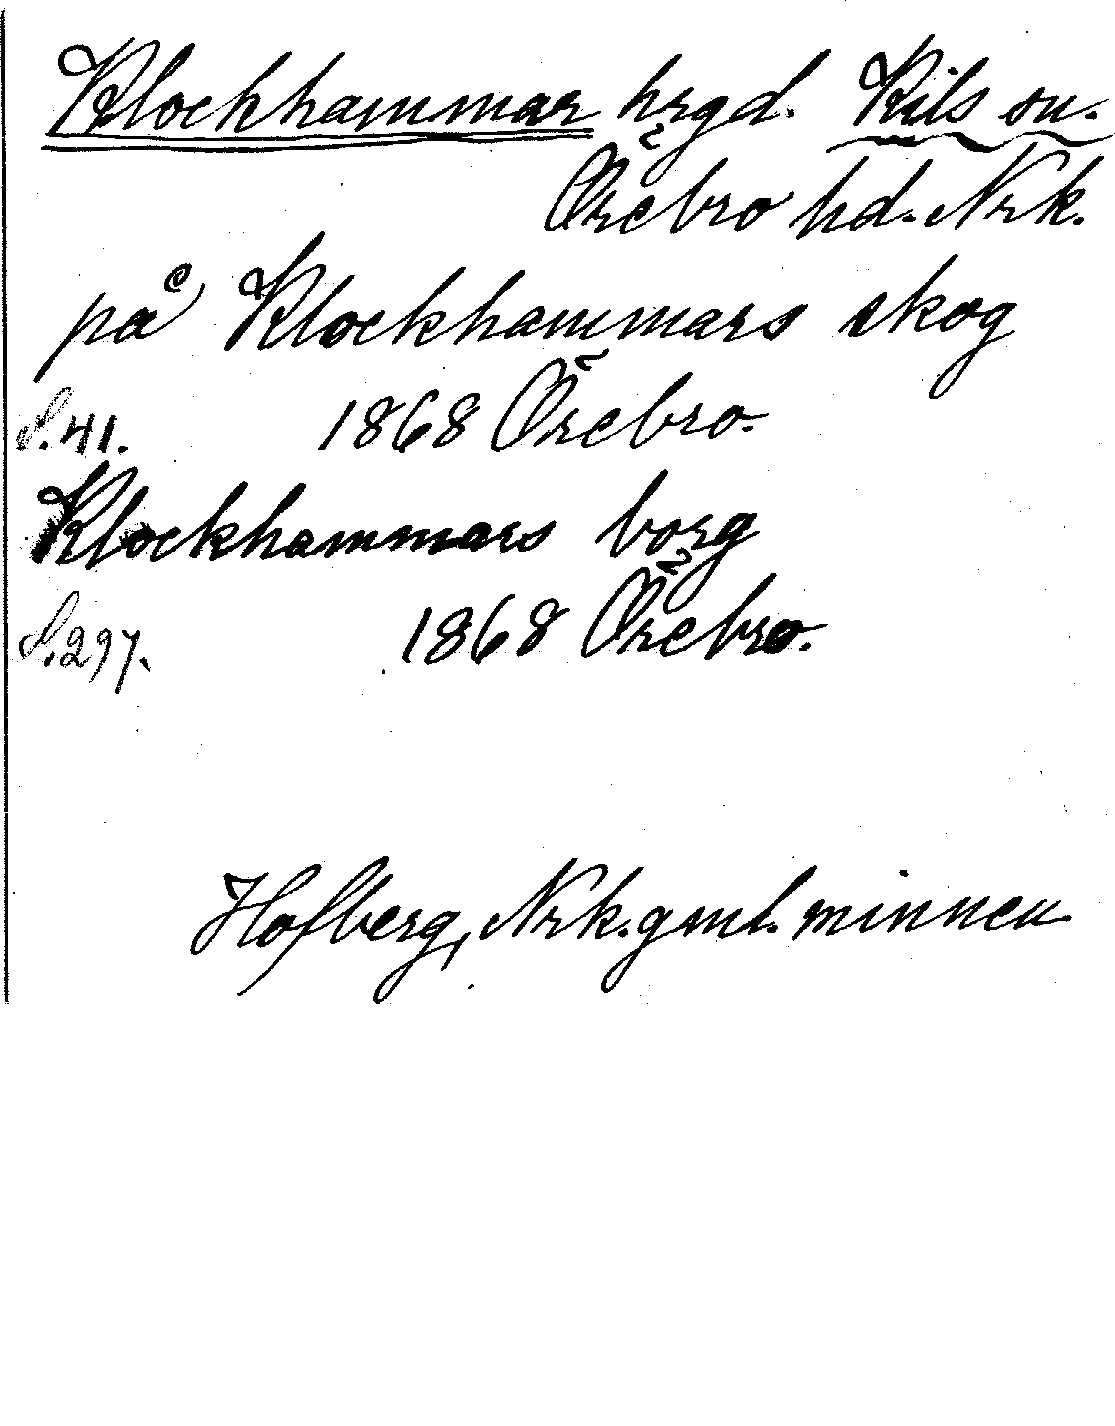 Klockhammar hrgd. Kils sn.
Örebro hd. Nrk.
på Klockhammars skog
S. 41. 1868 Örebro.
Klockhammars borg
S. 297. 1868 Örebro.
Hofberg, Nrk. gml. minnen